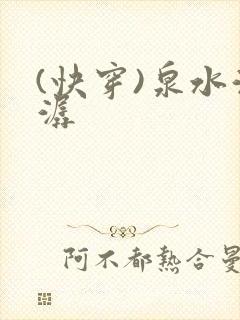 (快穿)泉水
潺
阿不都熱合曼